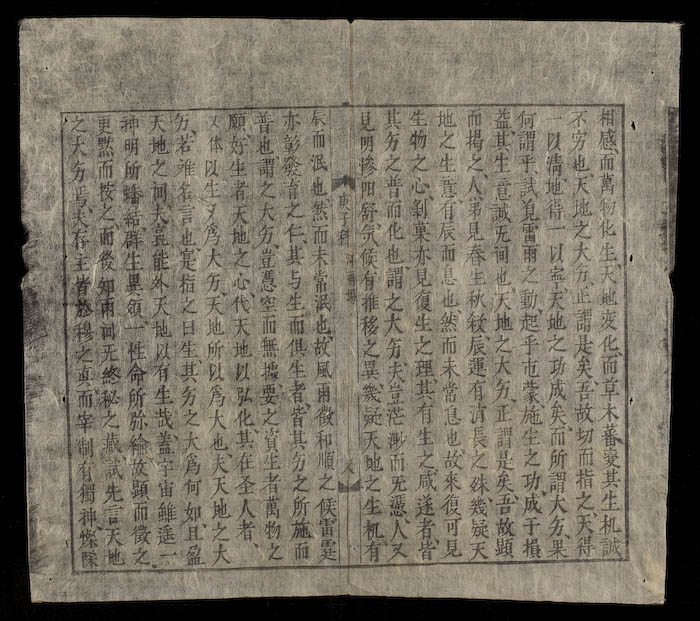 相感而萬物化生天地変化而草木蕃变其生机誠
不穷也天地之大德正謂是矣吾故切而指之天得
一以清地得一以寧天地之功成矣而所謂大德果
何謂乎試見雷雨之動起乎屯蒙施生之功成于損
益其生意誠无间也天地之大德正謂是矣吾故顕
而揭之人第見春生秋殺辰運有消長之殊幾疑天
地之生意有辰而息也然而未常息也故來復可見
生物之心剝菓亦見復生之理其有生之咸遂者皆
其德之普而化也謂之大德夫豈茫渺而无憑人又
見明惨阳舒气候有推移之異幾疑天地之生机有
庚子科
辰而泯也然而未常泯也故風雨徵和順之候雷霆
亦彰發育之仁其与生而俱生者皆其德之所施而
普也謂之大德豈憑空而無據要之資生者萬物之
願好生者天地之心代天地以弘化其在圣人者
又体以生又為大德天地所以為大也夫天地之大
德若难名言也寔指之曰生其德之大為何如且盈
天地之间夫能外天地以有生哉蓋宇宙雖遥一
神明所蟠結群生異領一性命所弥綸故顕而徵之
更默而按之而後知两间无終秘之藏試先言天地
之大德焉夫存主皆於穆之真而宰制有獨神燦陈